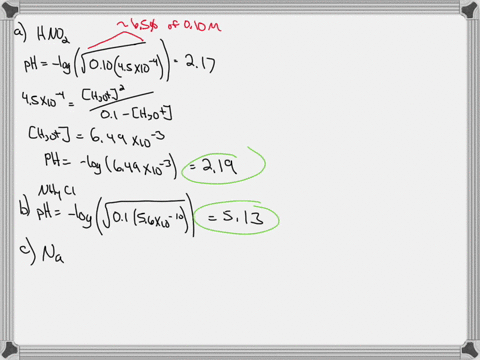 ~6.5% of 0.10M
a) HNO2
pH = -log(√0.10(4.5x10^-4)) = 2.17
4.5x10^-4 = [H3O+]^2 / 0.1 - [H3O+]
[H3O+] = 6.49x10^-3
pH = -log(6.49x10^-3) = 2.19
NH4Cl
b) pH = -log(√0.1(5.6x10^-10)) = 5.13
c) Na